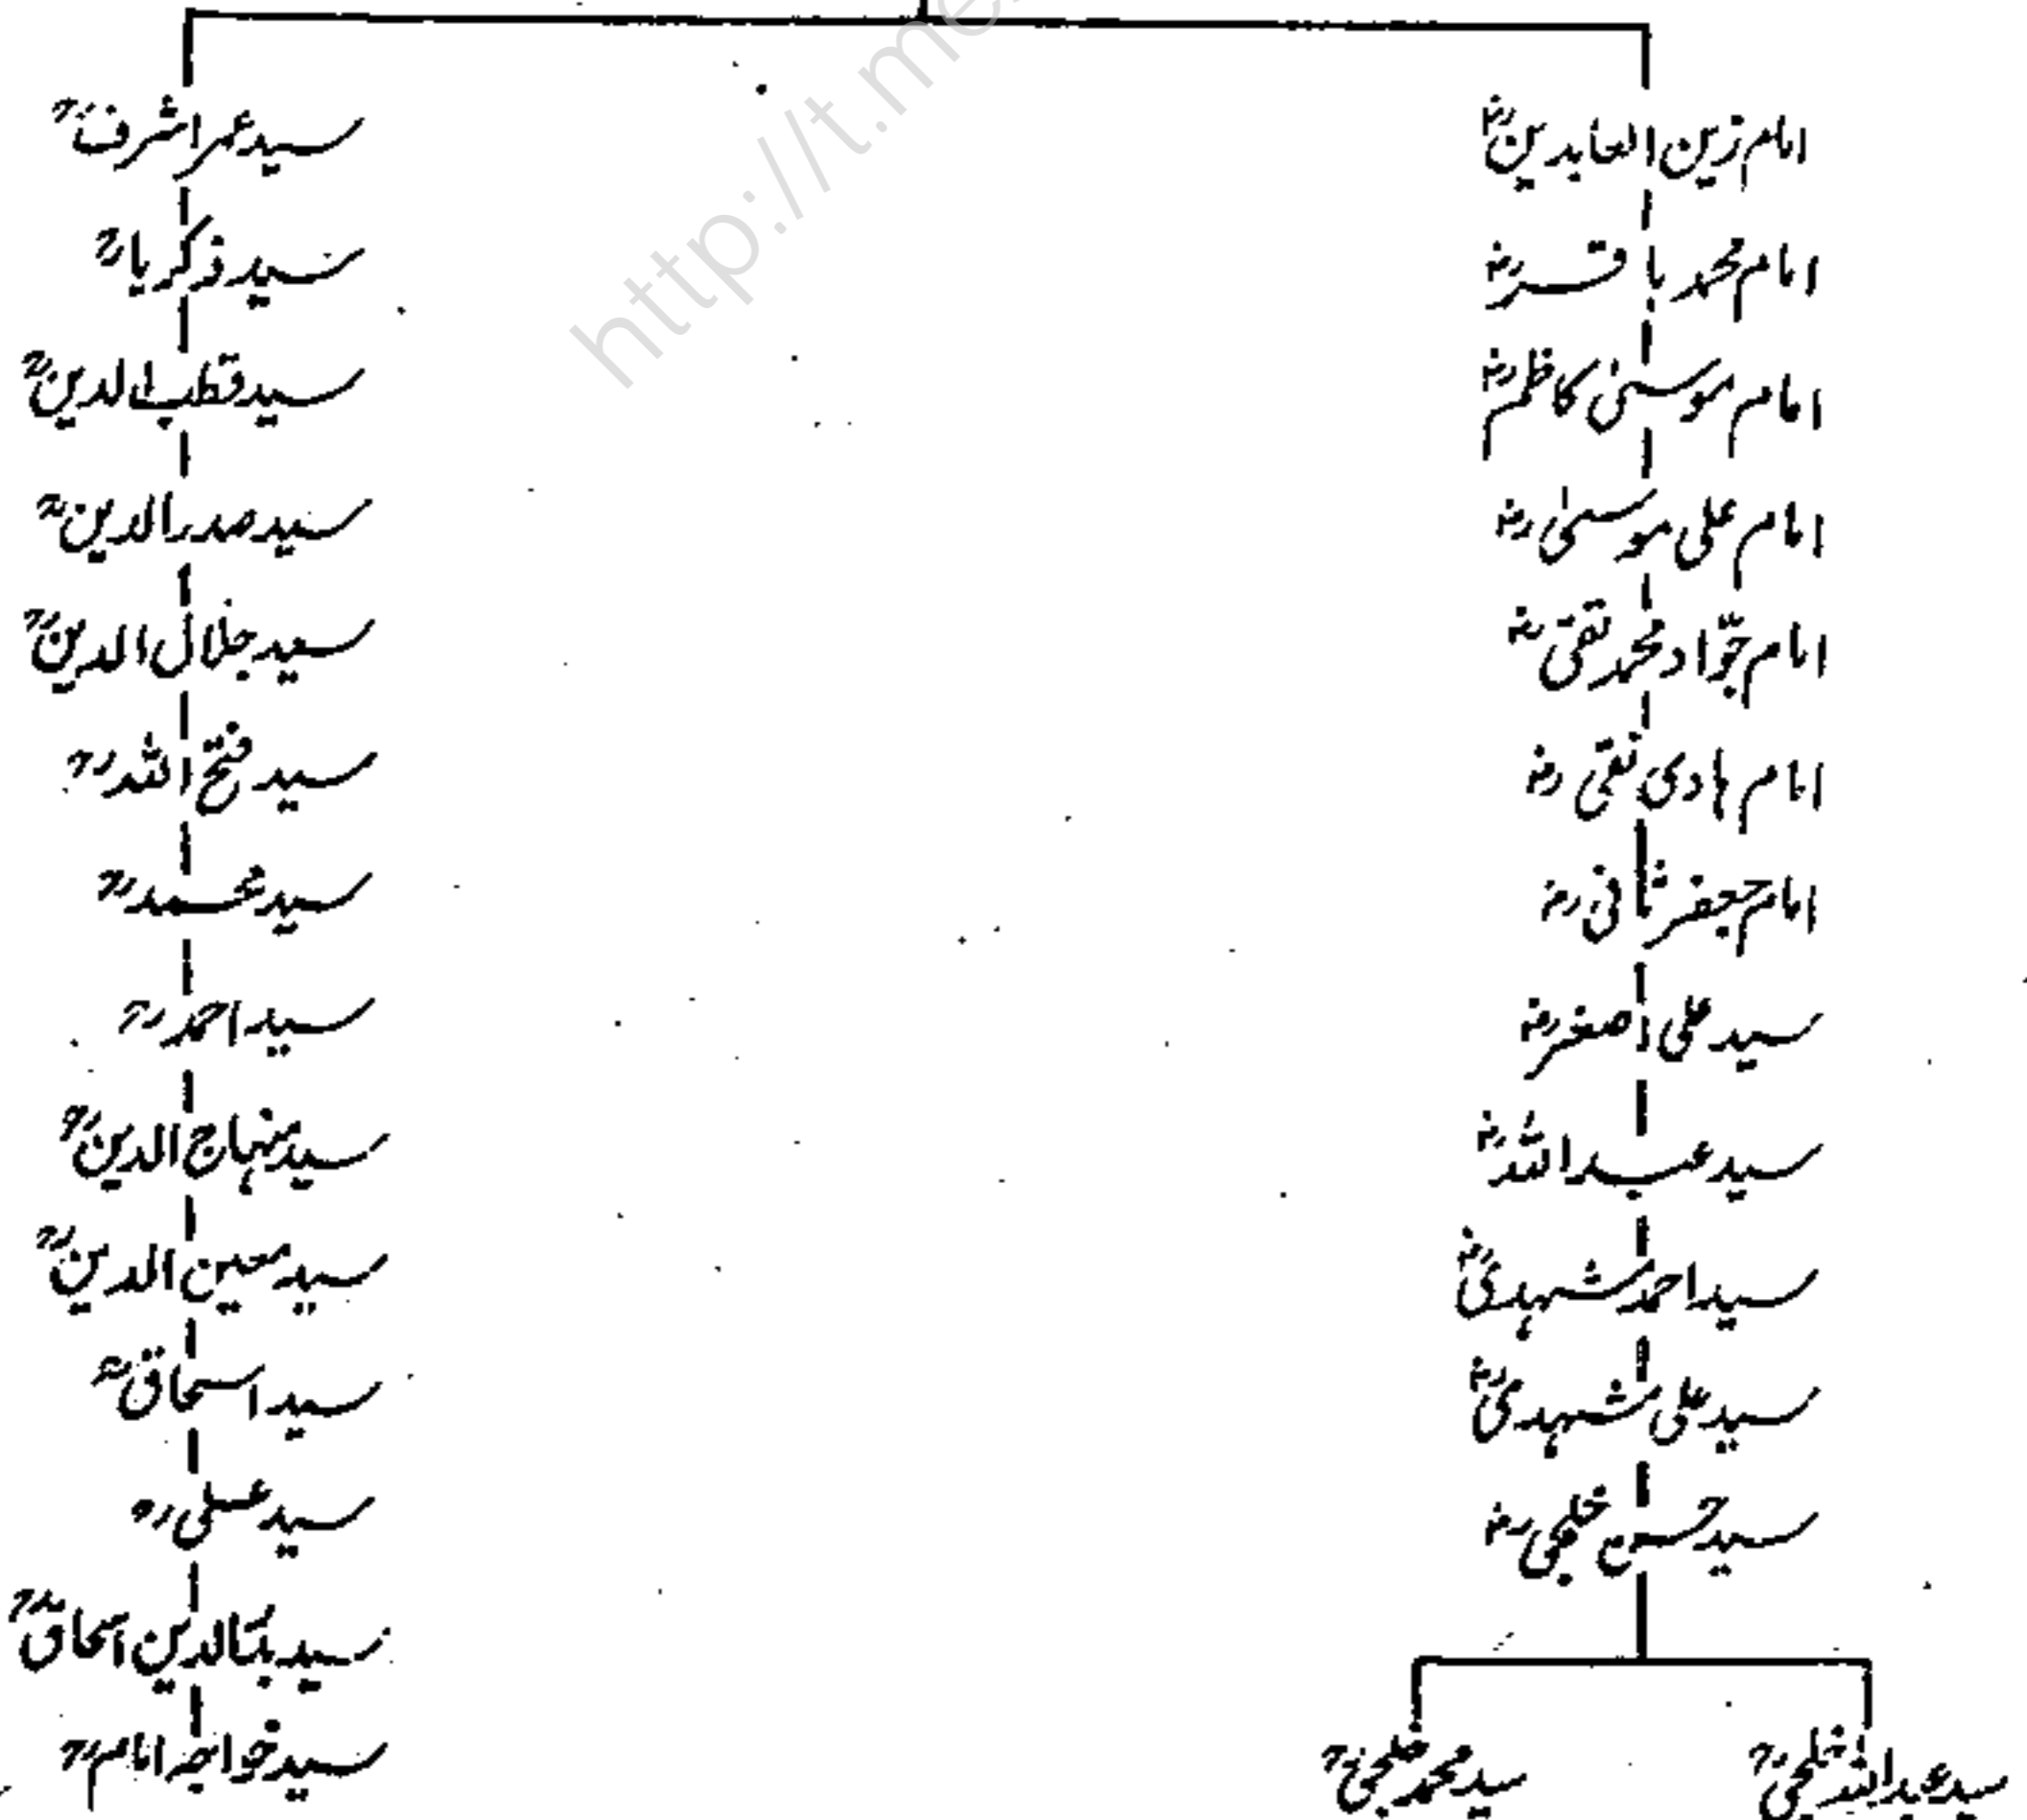 امام زین العابدینؓ
امام محمد باقرؓ
امام موسیٰ کاظمؓ
امام علی موسیٰؓ
امام جوّاد محمد تقیؓ
امام ہادی نقیؓ
امام جعفر ثانیؓ
سید علی اصغرؓ
سید عبداللہؓ
سید احمد مشہدیؓ
سید علی مشہدیؓ
سید حسن خلجیؓ
سید عبداللہ خلجیؒ
سید محمد خلجیؒ
سید عمر اشرفؒ
سید ذکریاؒ
سید قطب الدینؒ
سید صدر الدینؒ
سید جلال الدینؒ
سید فتح اللہؒ
سید محمدؒ
سید احمدؒ
سید منہاج الدینؒ
سید معین الدینؒ
سید اسحاقؒ
سید علیؒ
سید الدین اسحاقؒ
سید خواجہ امامؒ
http://t.me